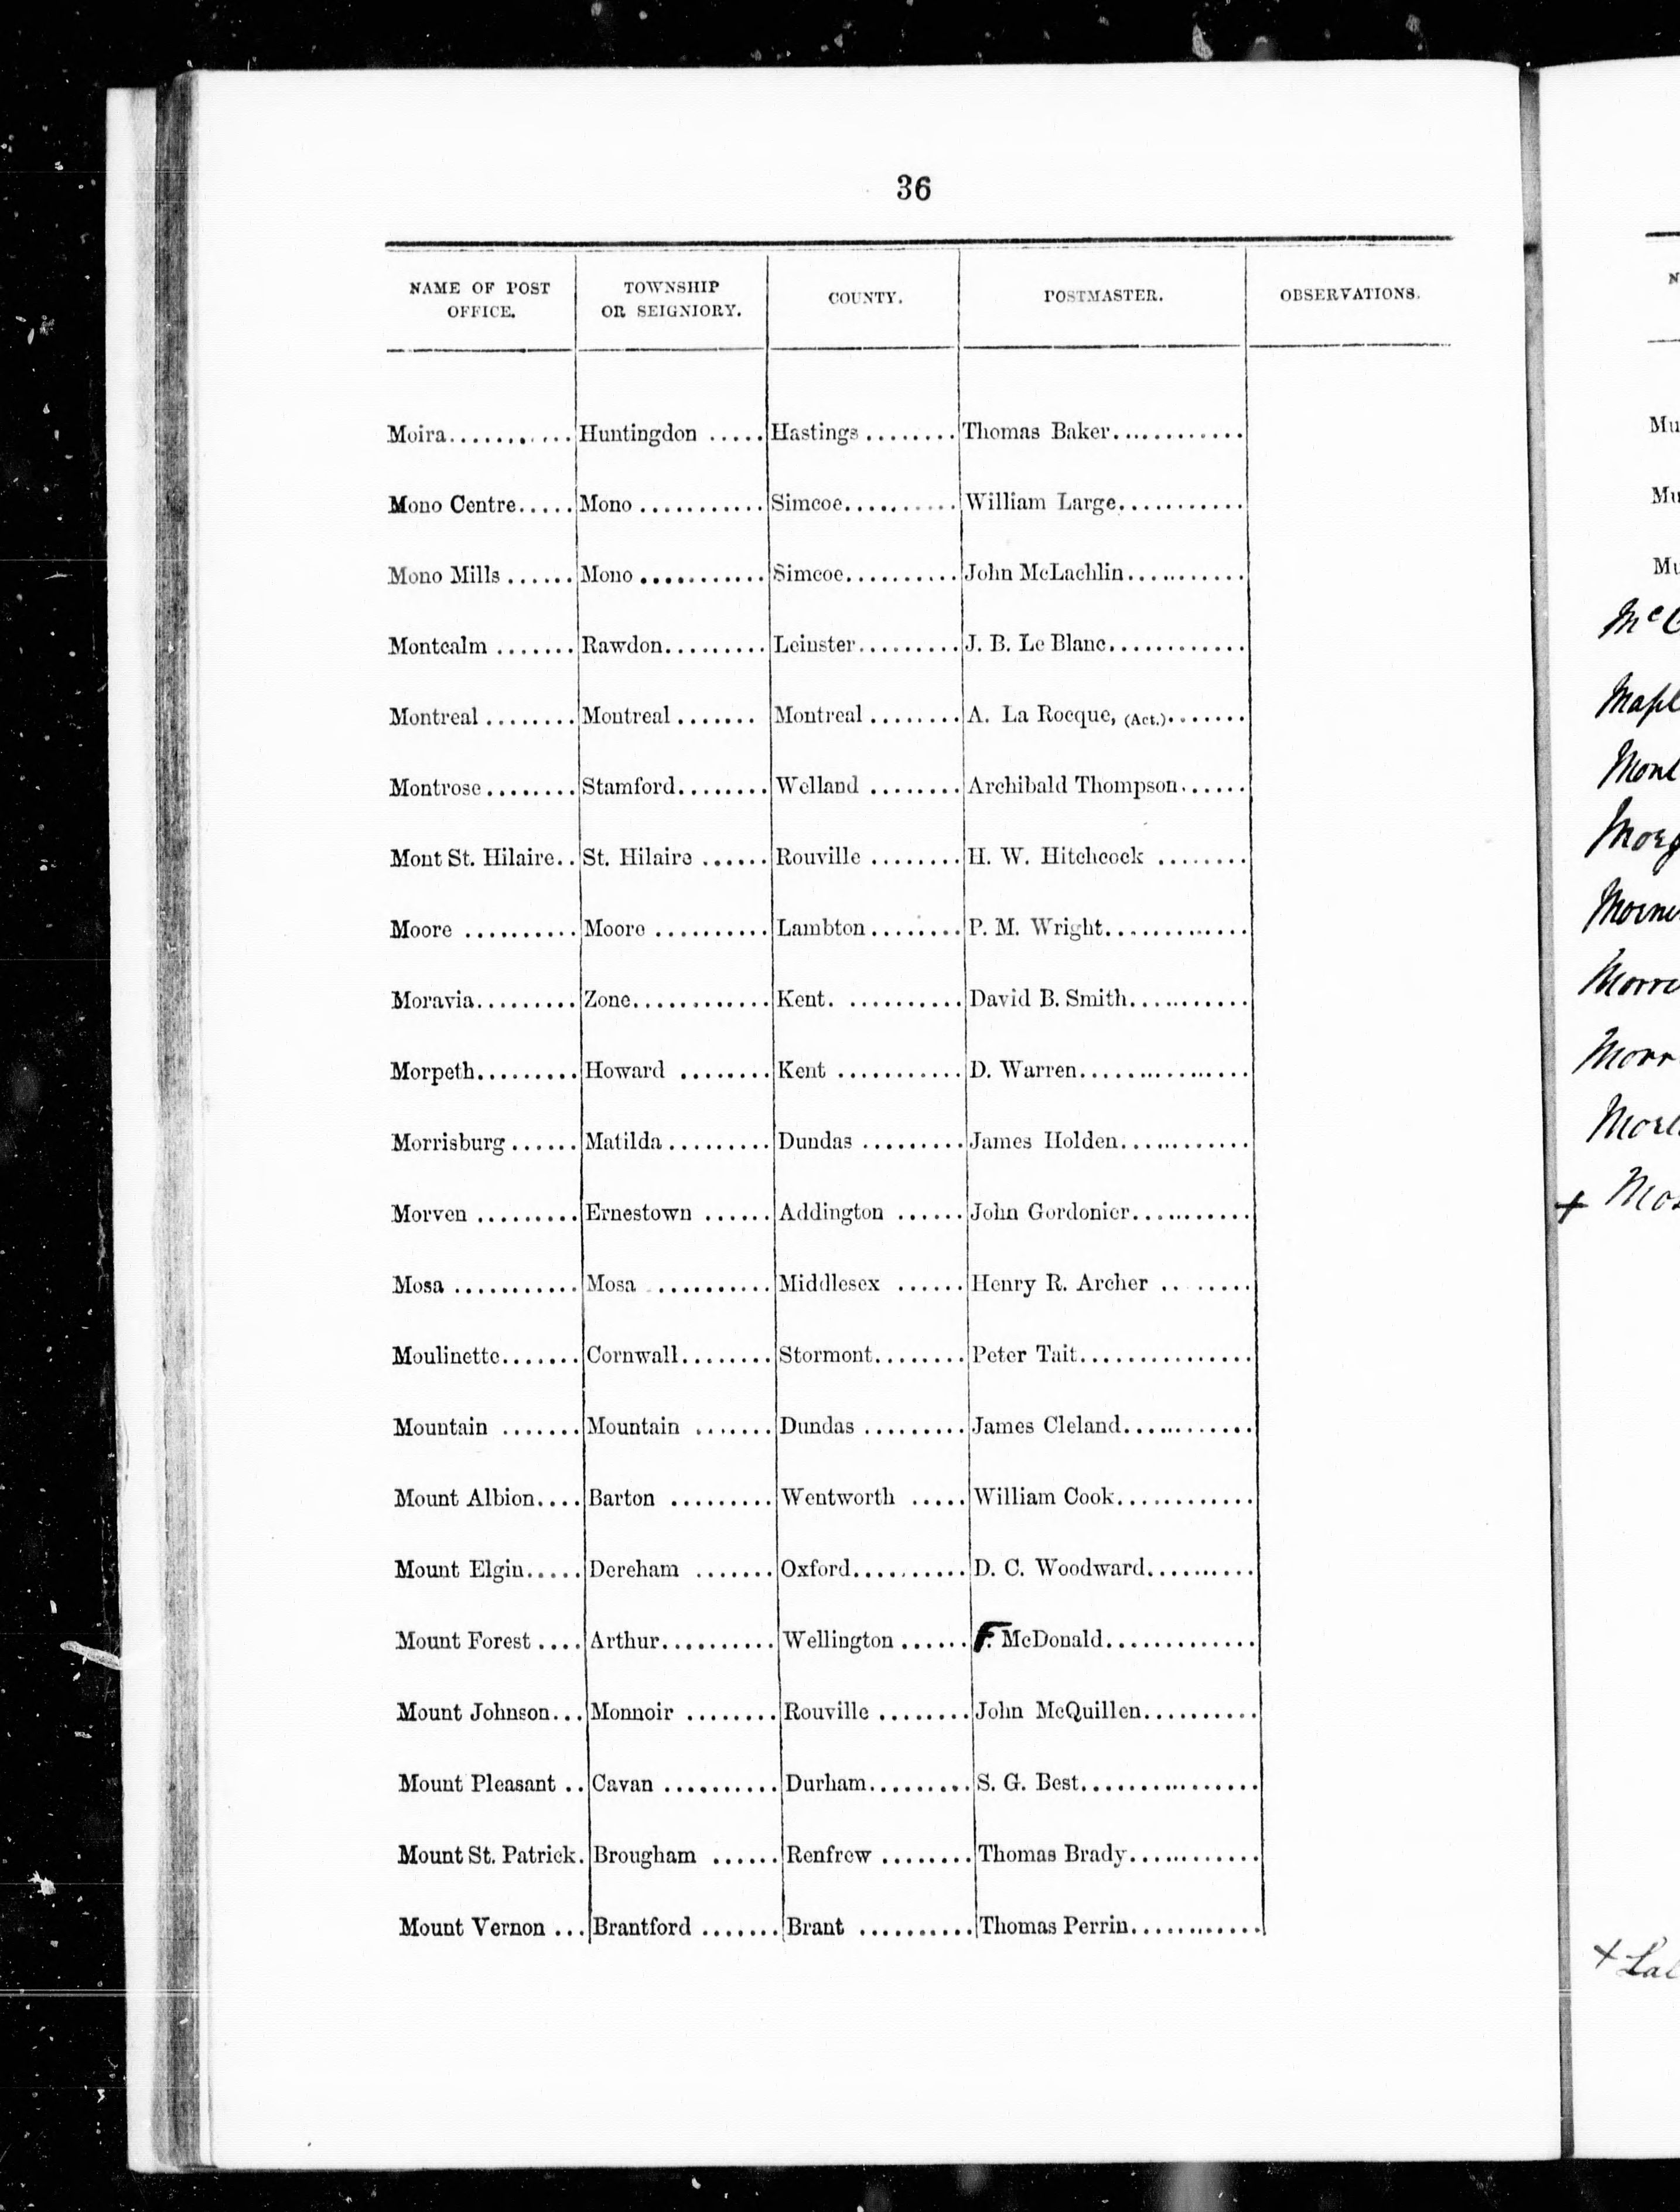 36
NAME OF POST OFFICE. TOWNSHIP OR SEIGNIORY. COUNTY. POSTMASTER. OBSERVATIONS.
Moira........... Huntingdon ..... Hastings ........ Thomas Baker............
Mono Centre..... Mono ........... Simcoe.......... William Large...........
Mono Mills ...... Mono ........... Simcoe.......... John McLachlin...........
Montcalm ....... Rawdon......... Leinster......... J. B. Le Blanc............
Montreal ........ Montreal ....... Montreal ........ A. La Rocque, (Act.).......
Montrose ........ Stamford........ Welland ........ Archibald Thompson......
Mont St. Hilaire.. St. Hilaire ...... Rouville ........ H. W. Hitchcock ........
Moore .......... Moore .......... Lambton ........ P. M. Wright............
Moravia......... Zone............ Kent. .......... David B. Smith...........
Morpeth......... Howard ........ Kent ........... D. Warren...............
Morrisburg ...... Matilda ......... Dundas ......... James Holden............
Morven ......... Ernestown ...... Addington ...... John Gordonier...........
Mosa ........... Mosa ........... Middlesex ...... Henry R. Archer ........
Moulinette....... Cornwall........ Stormont........ Peter Tait...............
Mountain ....... Mountain ....... Dundas ......... James Cleland............
Mount Albion.... Barton ......... Wentworth ..... William Cook............
Mount Elgin..... Dereham ....... Oxford.......... D. C. Woodward..........
Mount Forest .... Arthur.......... Wellington ...... F. McDonald.............
Mount Johnson... Monnoir ........ Rouville ........ John McQuillen..........
Mount Pleasant .. Cavan .......... Durham......... S. G. Best...............
Mount St. Patrick. Brougham ...... Renfrew ........ Thomas Brady............
Mount Vernon ... Brantford ....... Brant .......... Thomas Perrin............